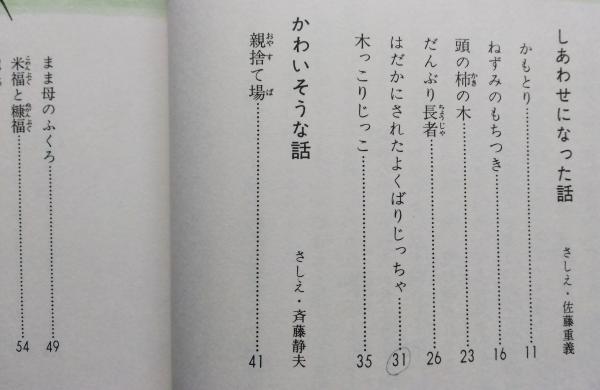 しあわせになった話 さしえ・佐藤重義
かもとり……11
ねずみのもちつき……16
頭の柿の木……23
だんぶり長者……26
はだかにされたよくばりじっちゃ……31
木っこりじっこ……35
かわいそうな話 さしえ・斉藤静夫
親捨て場……41
まま母のふくろ……49
米福と糠福……54